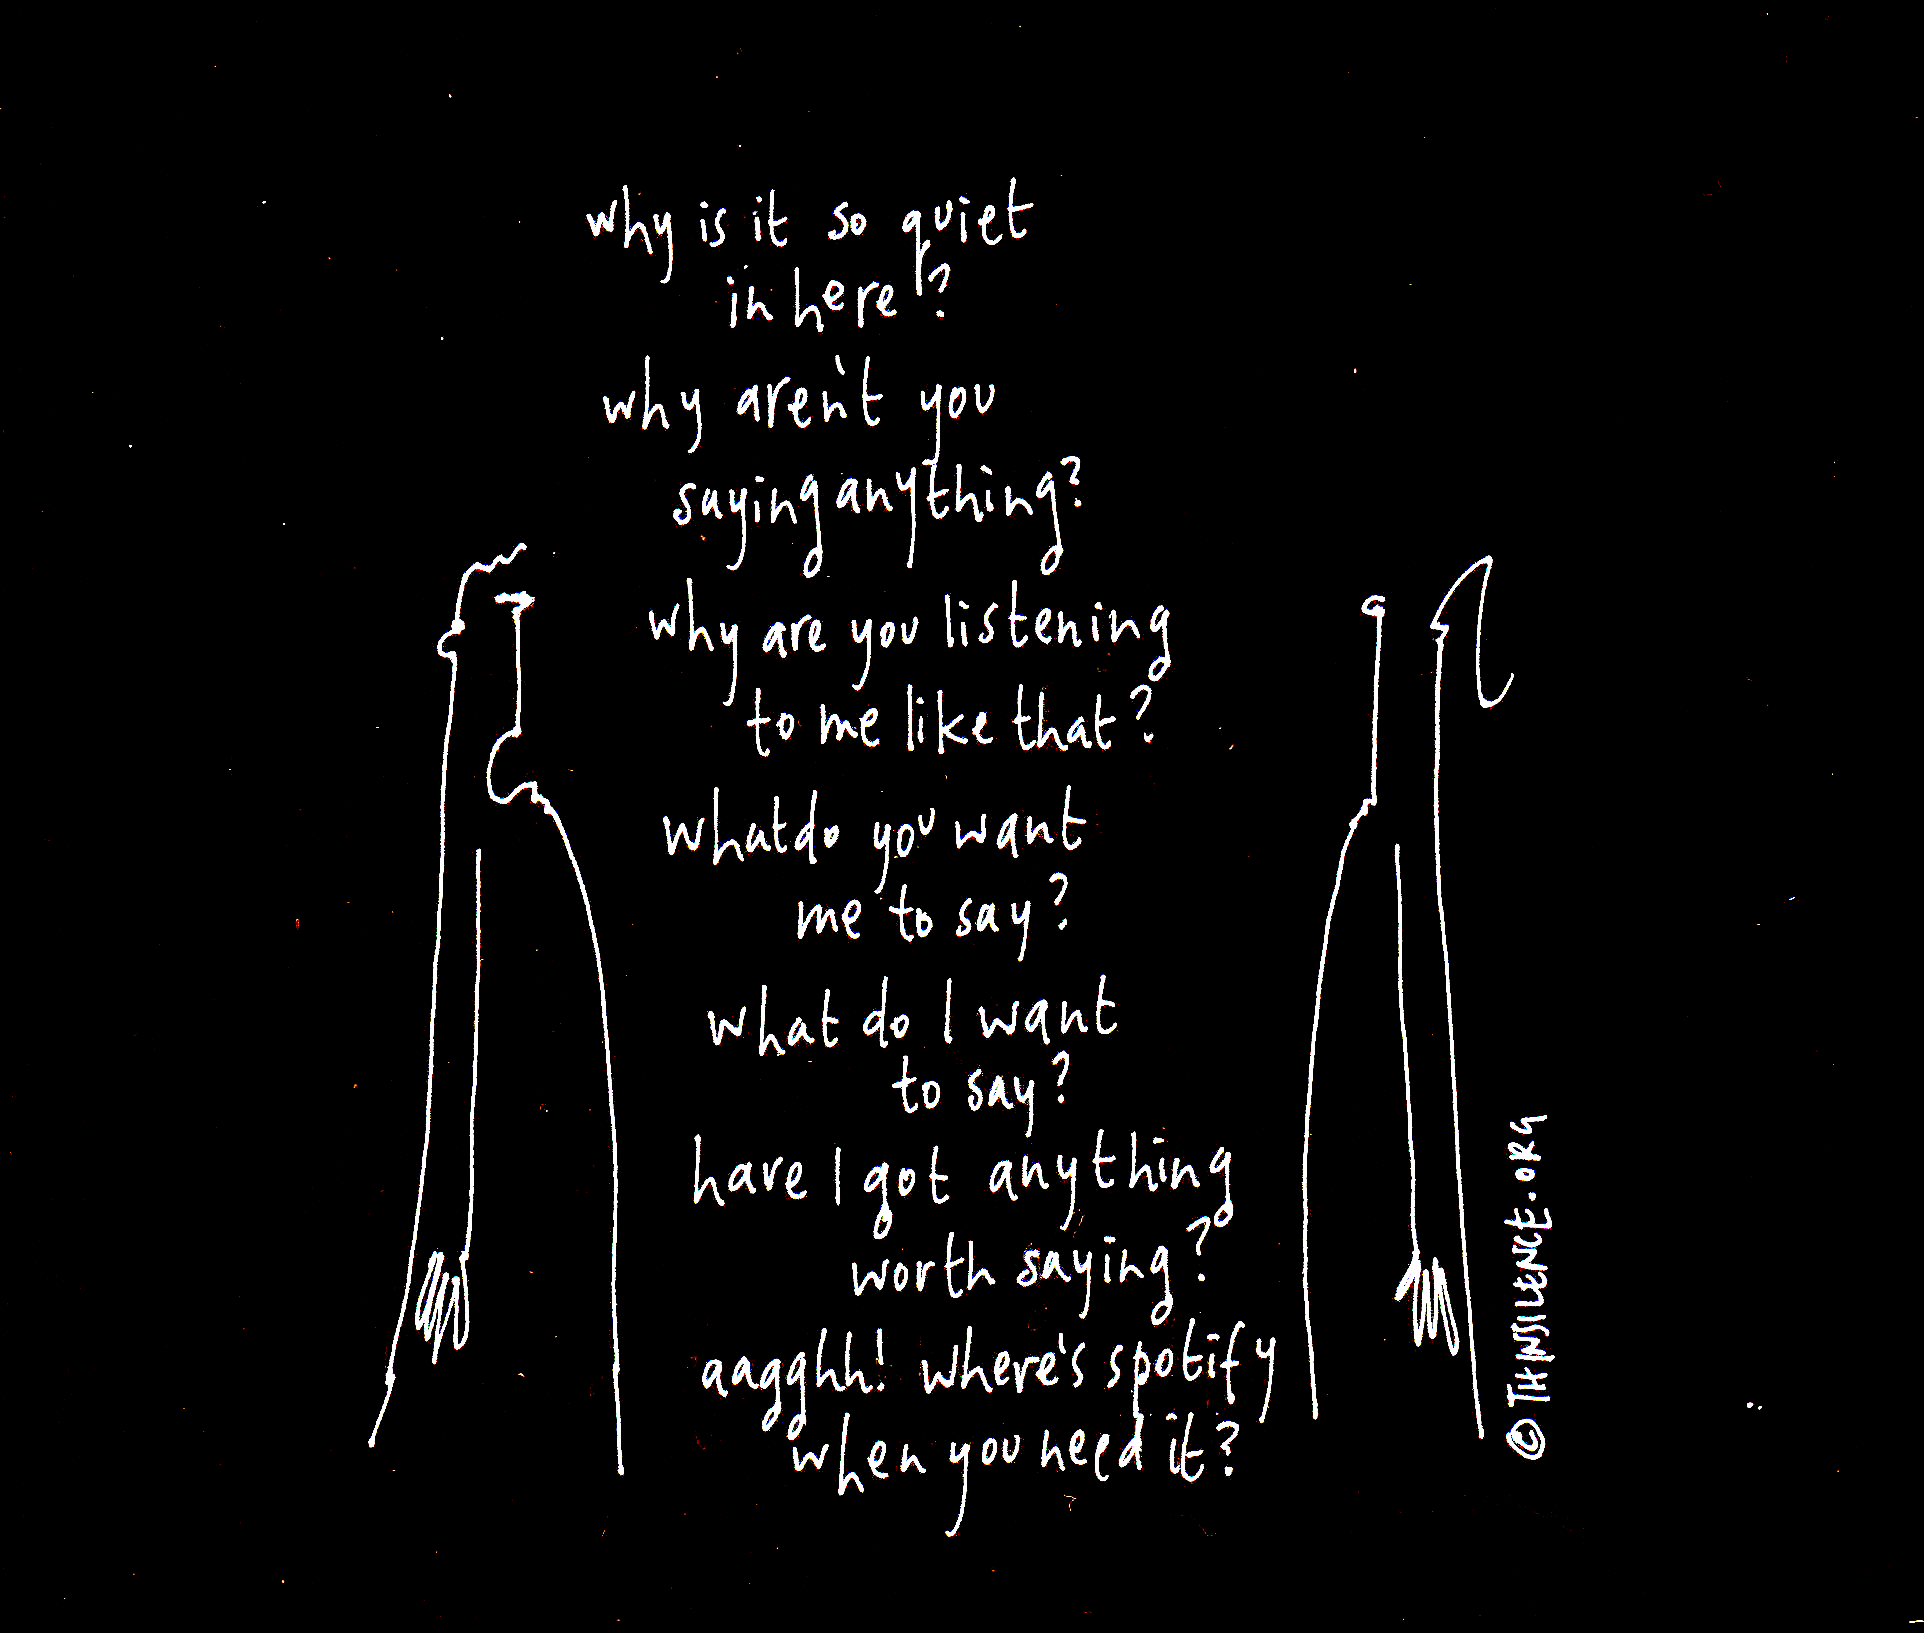 why is it so quiet
in here?
why aren't you
saying anything?
why are you listening
to me like that?
what do you want
me to say?
what do I want
to say?
have I got anything
worth saying?
aagghh! where's spotify
when you need it?
© THINSILENCE.ORG